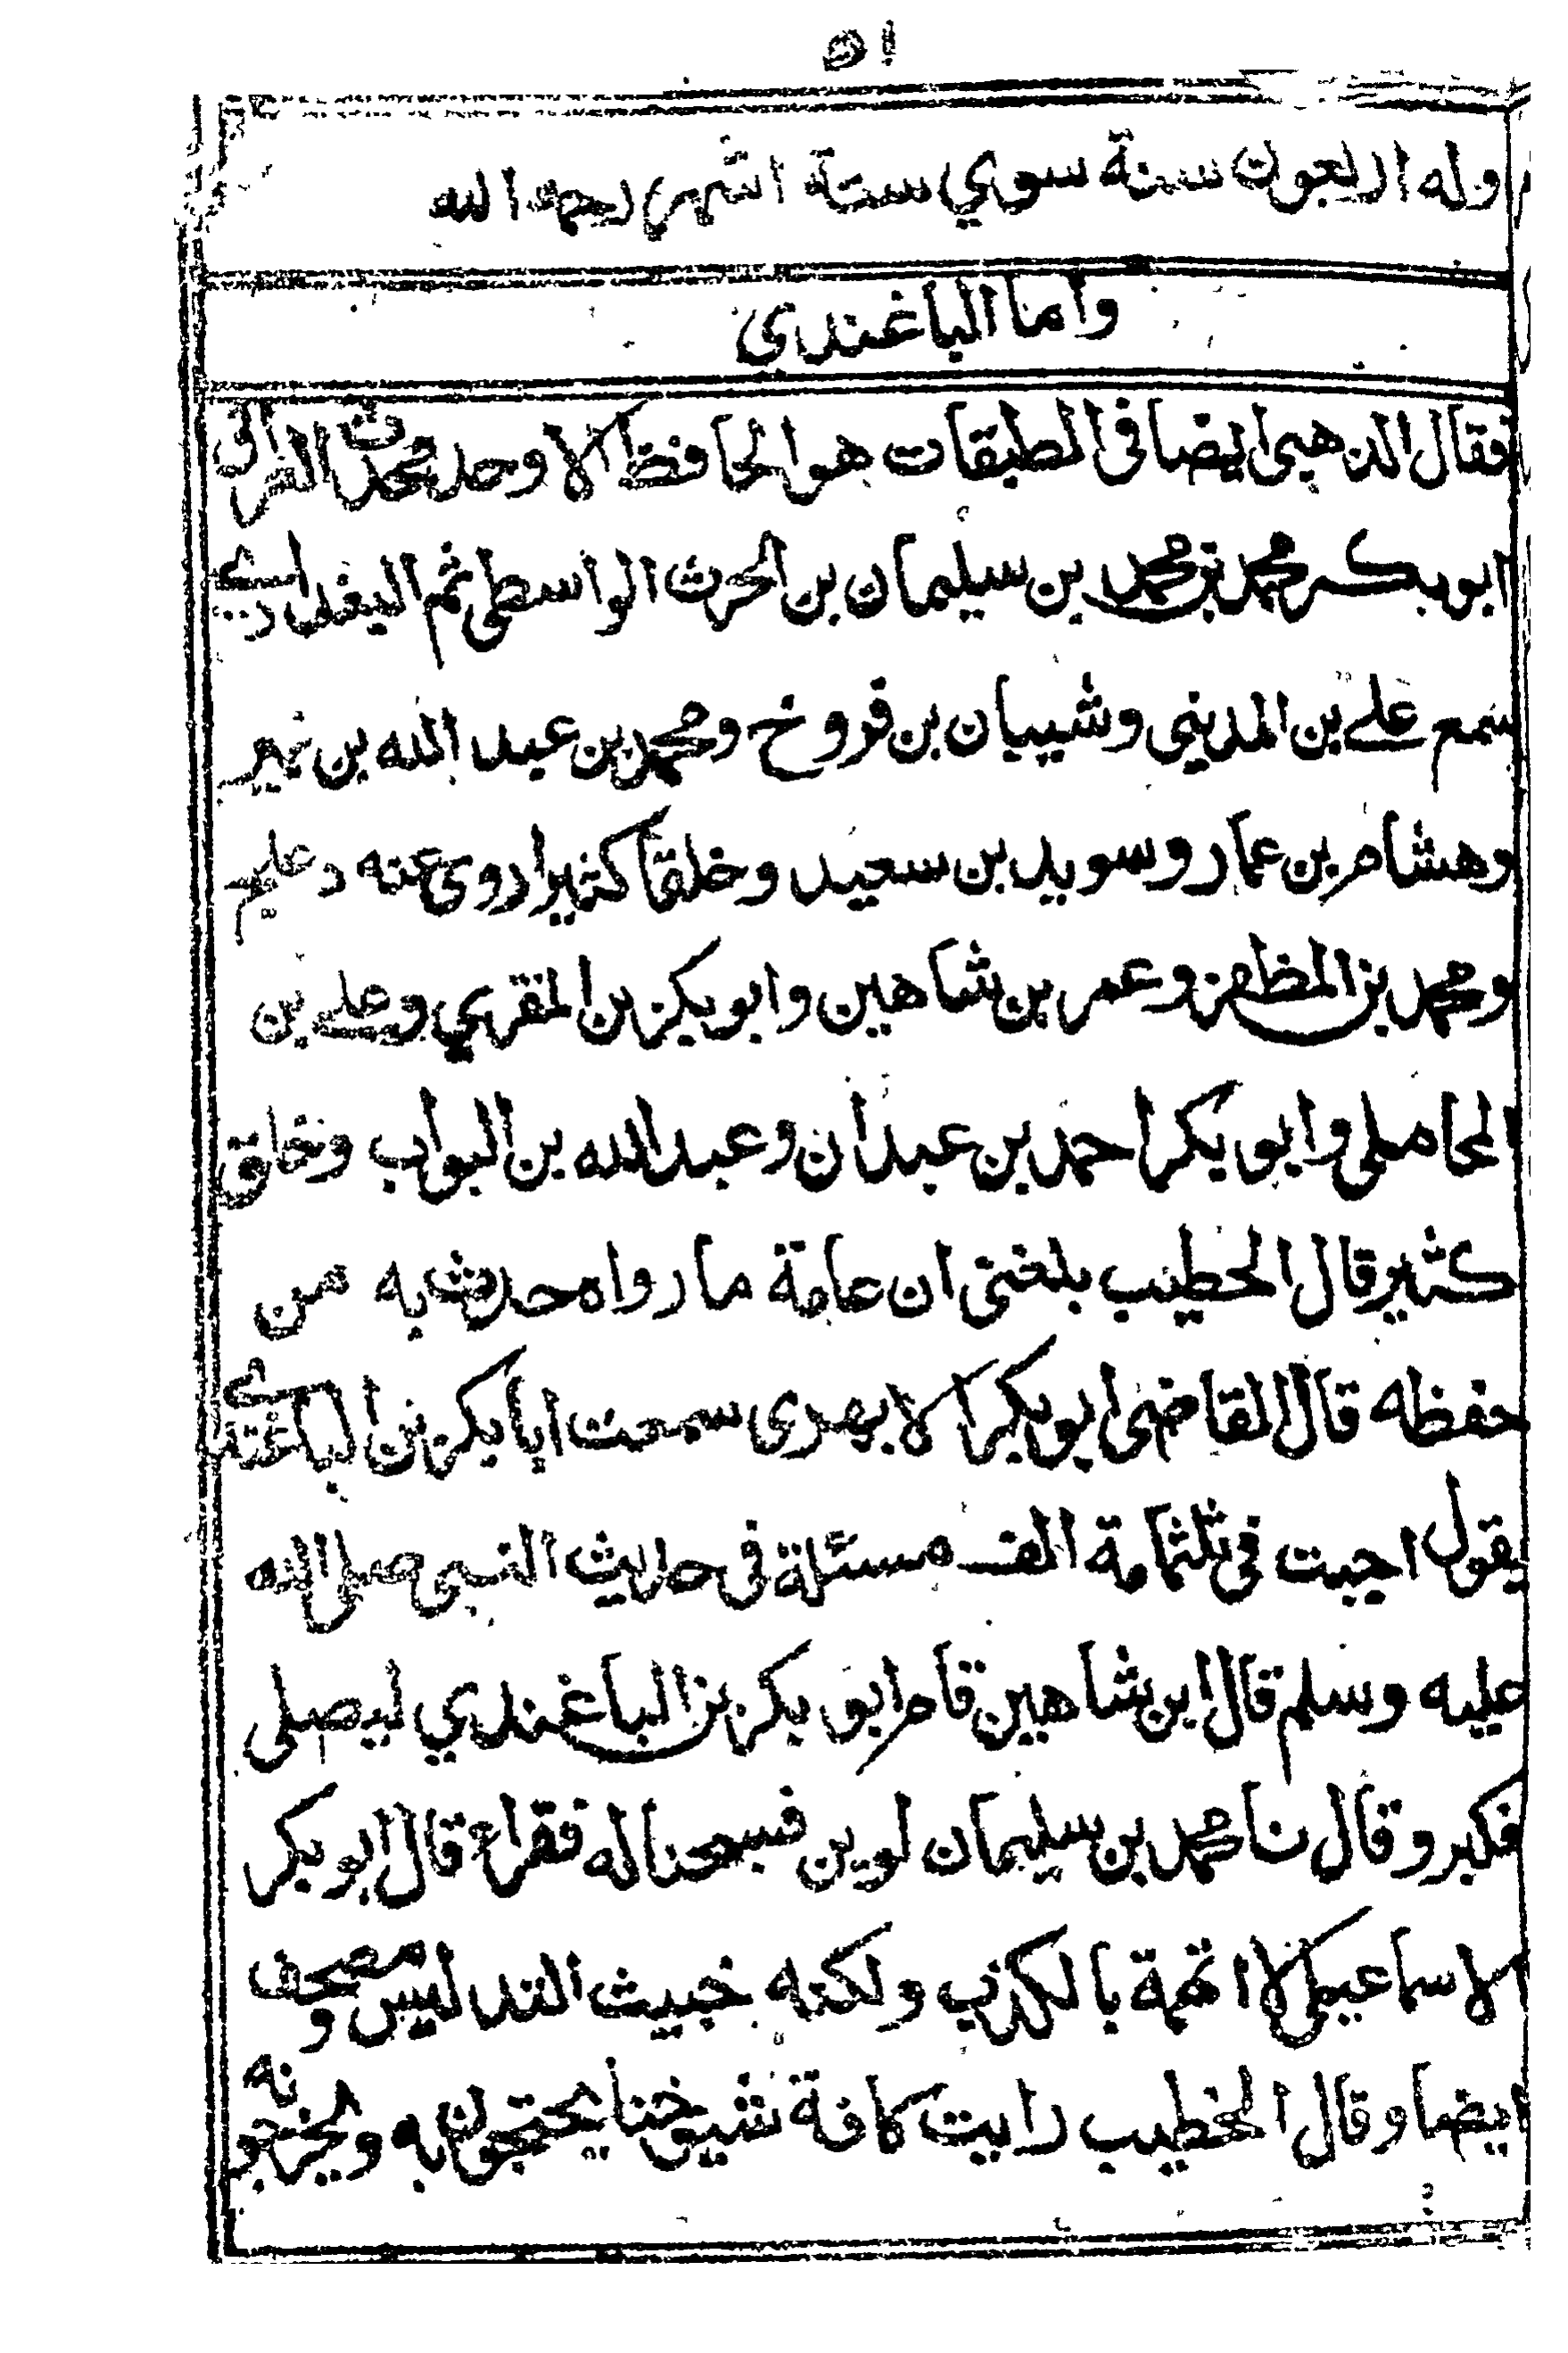 ٥١
وله اربعون سنة سوي ستة اشهر رحمه الله
واما الباغندي
فقال الذهبى ايضا فى الطبقات هو الحافظ الاوحد محدث العراق
ابو بكر محمد بن محمد بن سليمان بن الحرث الواسطى ثم البغدادي
سمع على بن المدينى وشيبان بن فروخ ومحمد بن عبد الله بن نمير
وهشام بن عمار وسويد بن سعيد وخلقا كثيرا روى عنه دعلج
ومحمد بن المظفر وعمر بن شاهين وابو بكر بن المقري وعلى بن
المحاملى وابو بكر احمد بن عبدان وعبد الله بن البواب وخلق
كثير قال الخطيب بلغنى ان عامة ما رواه حدث به من
حفظه قال القاضى ابو بكر الابهرى سمعت ابا بكر بن الباغندي
يقول اجبت فى ثلثمامة الف مسئلة فى حديث النبى صلى الله
عليه وسلم قال ابن شاهين قام ابو بكر بن الباغندي ليصلى
فكبر وقال نا محمد بن سليمان لوين فسبحنا له فقراء قال ابو بكر
الاسماعيلى لا اتهمة بالكذب ولكنه خبيث التدليس ومصحف
ايضا وقال الخطيب رايت كافة شيوخنا يحتجون به ويخرجونه